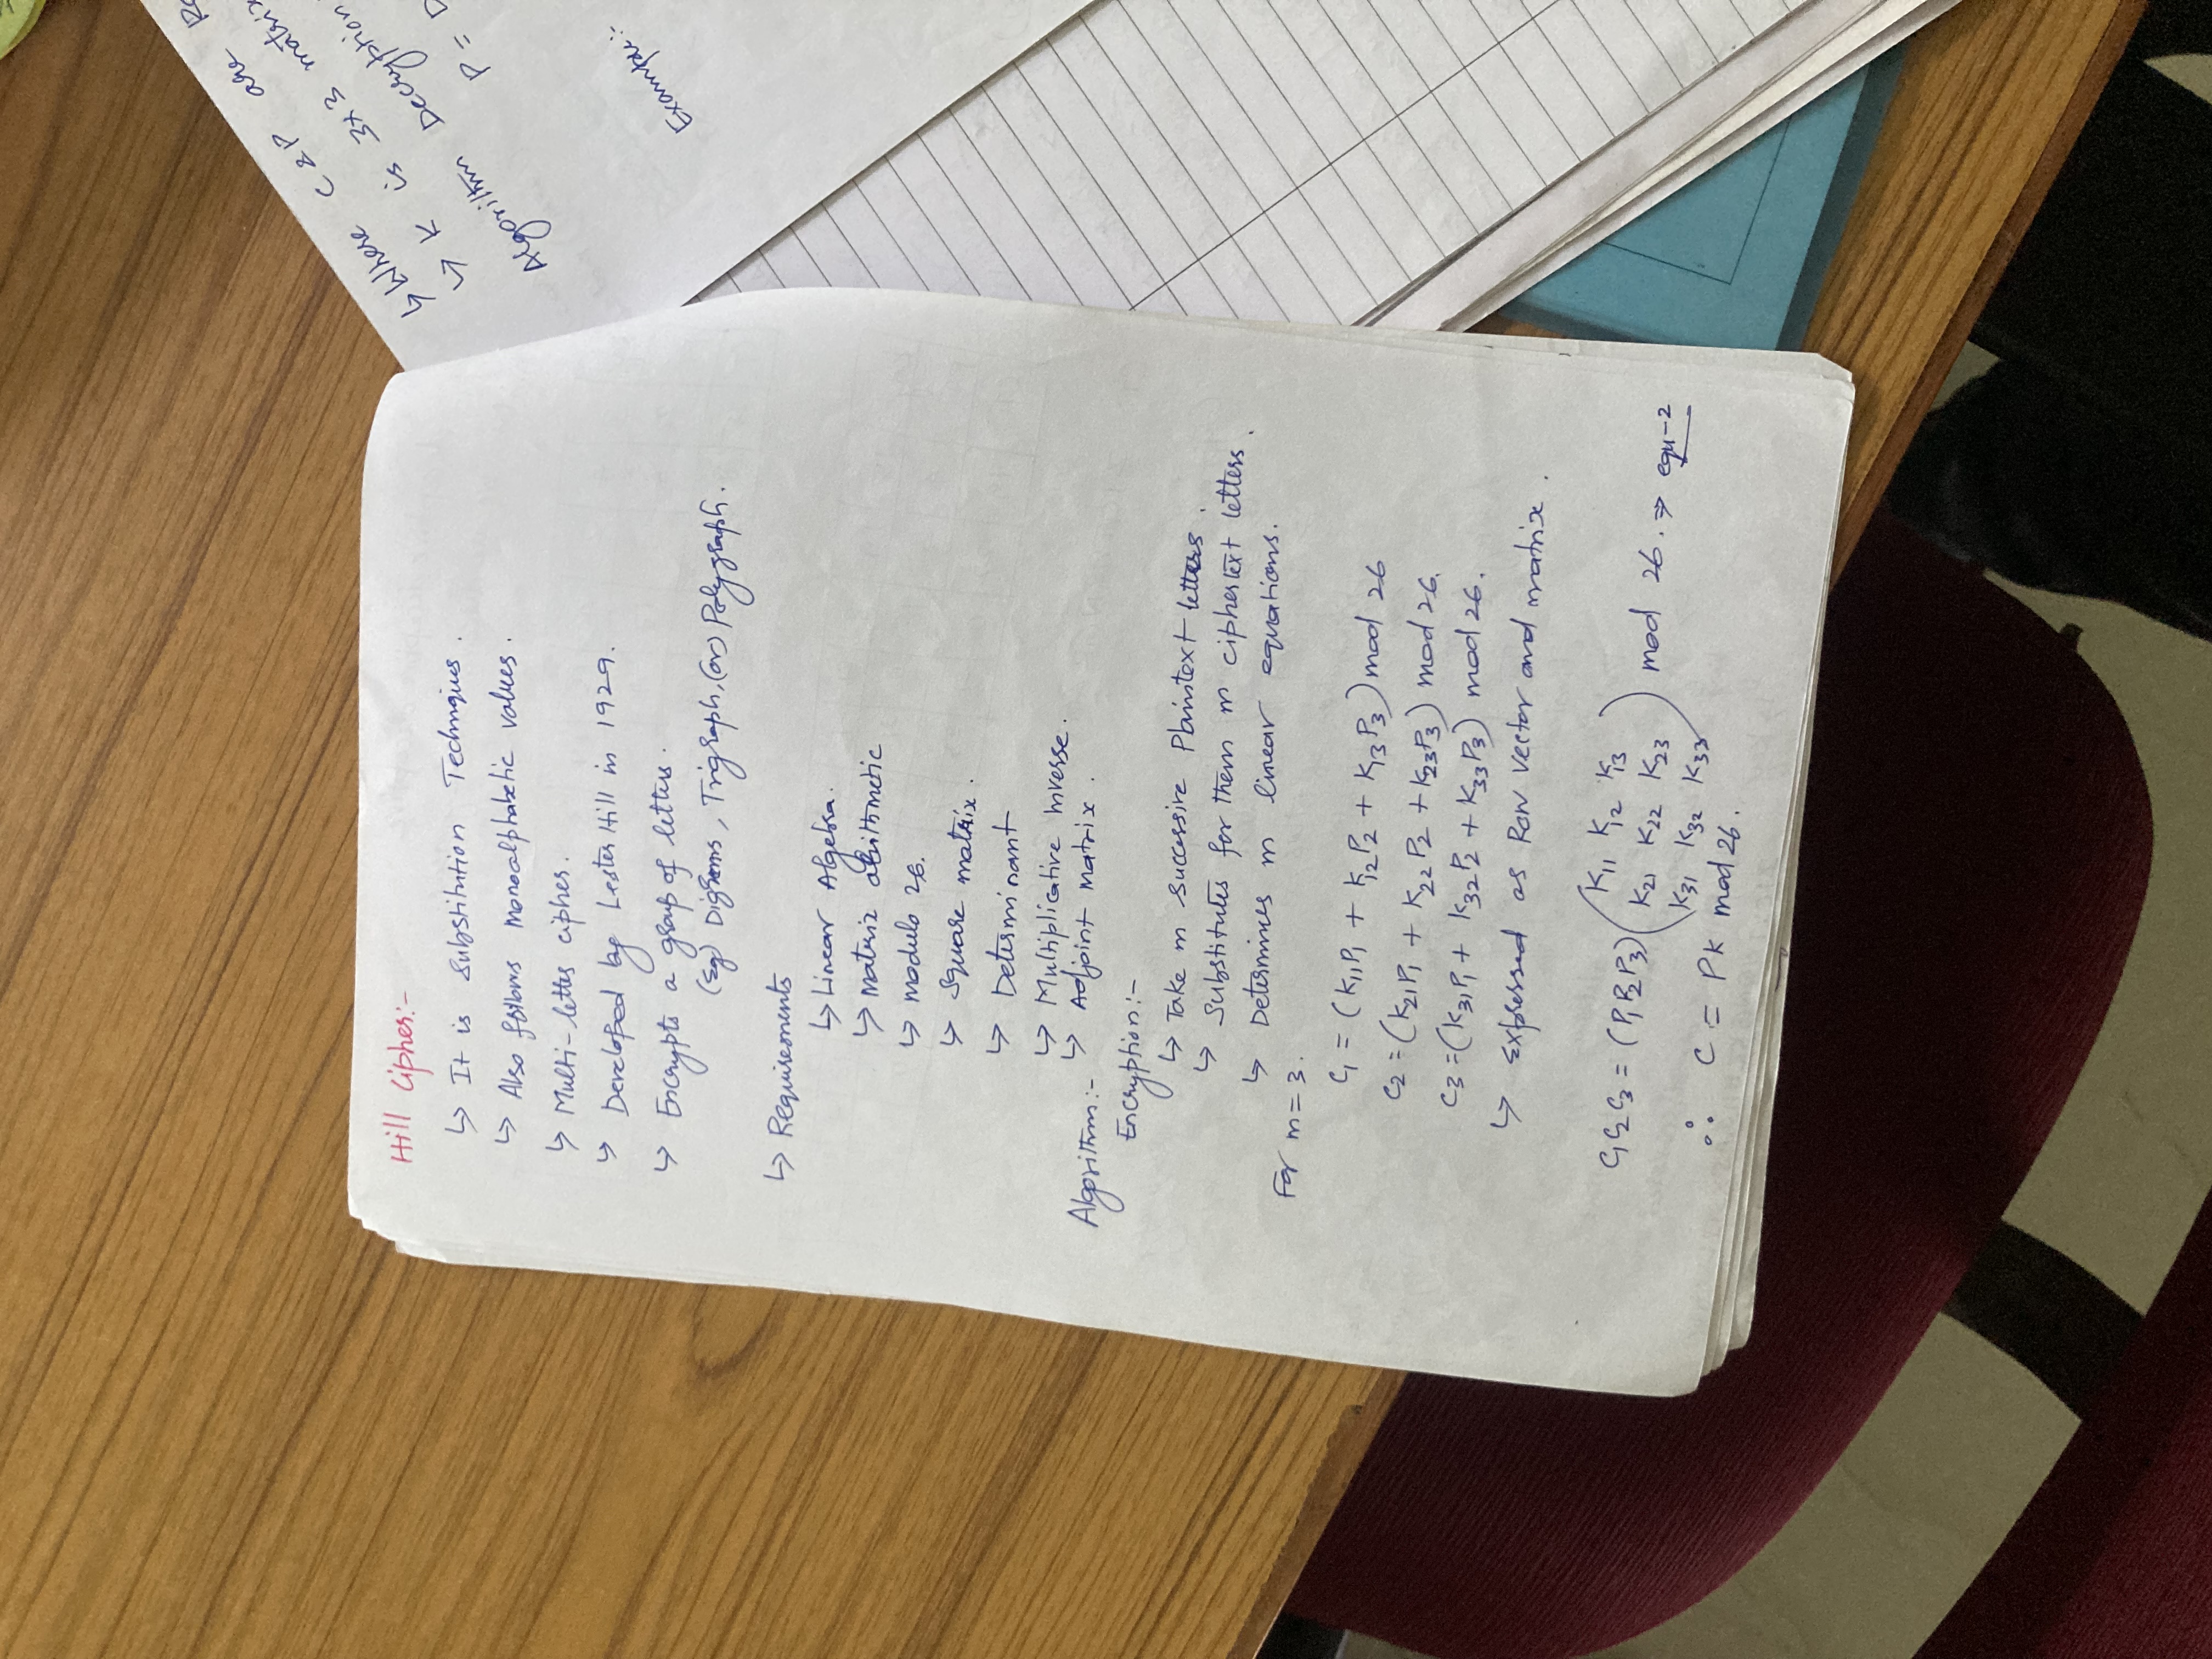 Hill Cipher:-
↳ It is Substitution Techniques.
↳ Also follows monoalphabetic values.
↳ Multi-letter cipher.
↳ Developed by Lester Hill in 1929.
↳ Encrypts a group of letters.
(Eg) Digrams, Trigraph, (or) Polygraph.
↳ Requirements
↳ Linear Algebra.
↳ matrix arithmetic
↳ modulo 26.
↳ Square matrix.
↳ Determinant
↳ Multiplicative Inverse.
↳ Adjoint matrix.
Algorithm:-
Encryption:-
↳ Take m successive Plaintext letters.
↳ Substitutes for them m ciphertext letters.
↳ Determines m linear equations.
For m=3.
C1 = (K11P1 + K12P2 + K13P3) mod 26
C2 = (K21P1 + K22P2 + K23P3) mod 26.
C3 = (K31P1 + K32P2 + K33P3) mod 26.
↳ Expressed as Row vector and matrix.
K11 K12 K13
C1C2C3 = (P1P2P3) ( K21 K22 K23 ) mod 26. ⇒ equ-2
K31 K32 K33
∴ C = PK mod 26.
↳ Where C & P are
↳ K is 3x3 matrix
Algorithm Decryption
P =
Example:-